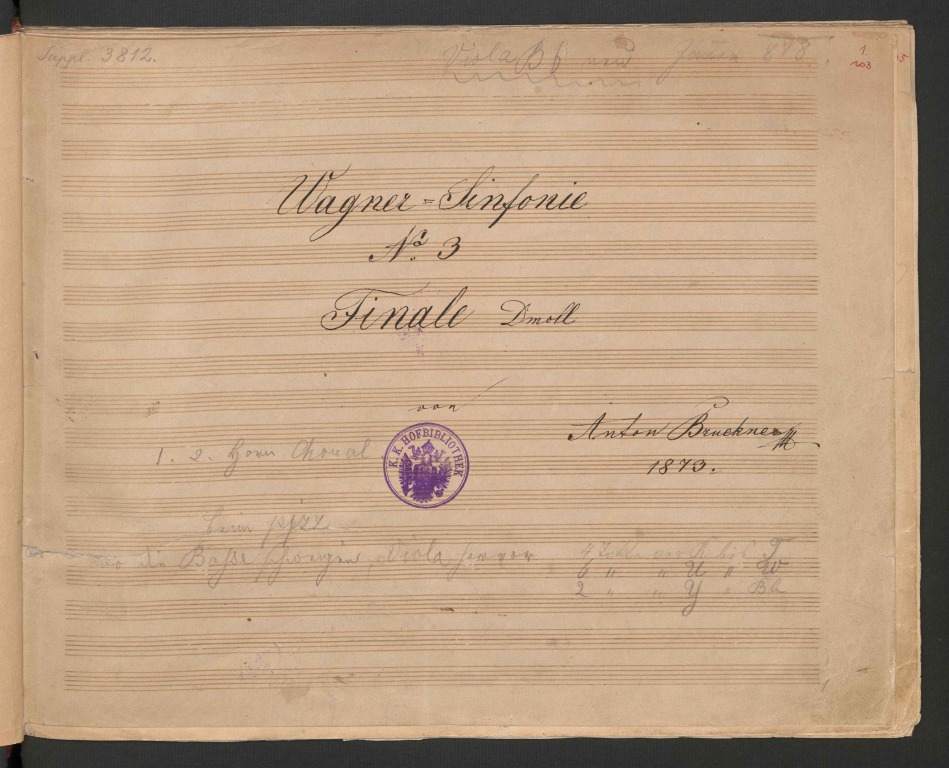 Suppl. 3812.
Viola B 6 und
1
103
Wagner=Sinfonie
No. 3
Finale Dmoll
von
Anton Bruckner
1873.
1. 2. Horn Choral
K. K. HOFBIBLIOTHEK
beim pizz
die Bässe schweigen, Viola hervor
4 " T
6 " " U " W
2 " " Y "